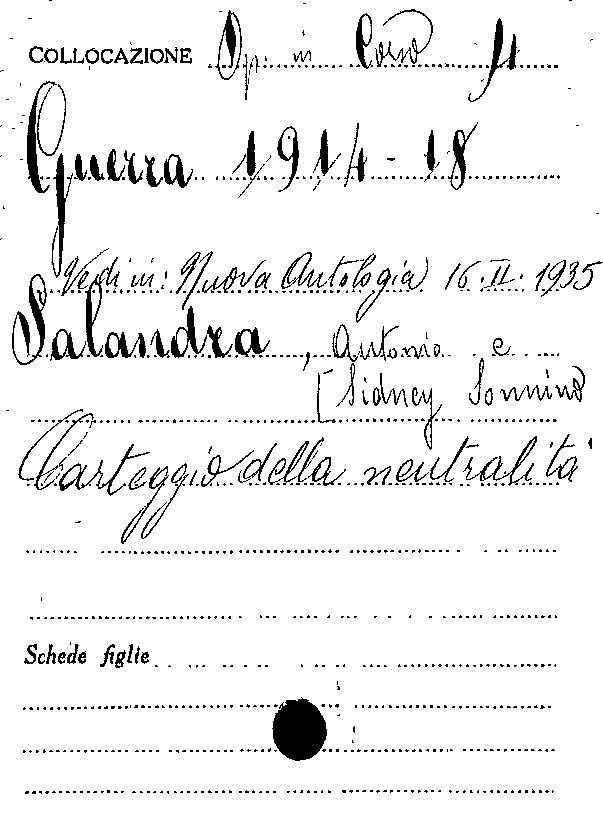 COLLOCAZIONE Op. in Corso
Guerra 1914-18
Vedi in: Nuova Antologia 16.II.1935
Salandra, Antonio e
[Sidney Sonnino
Carteggio della neutralità
Schede figlie